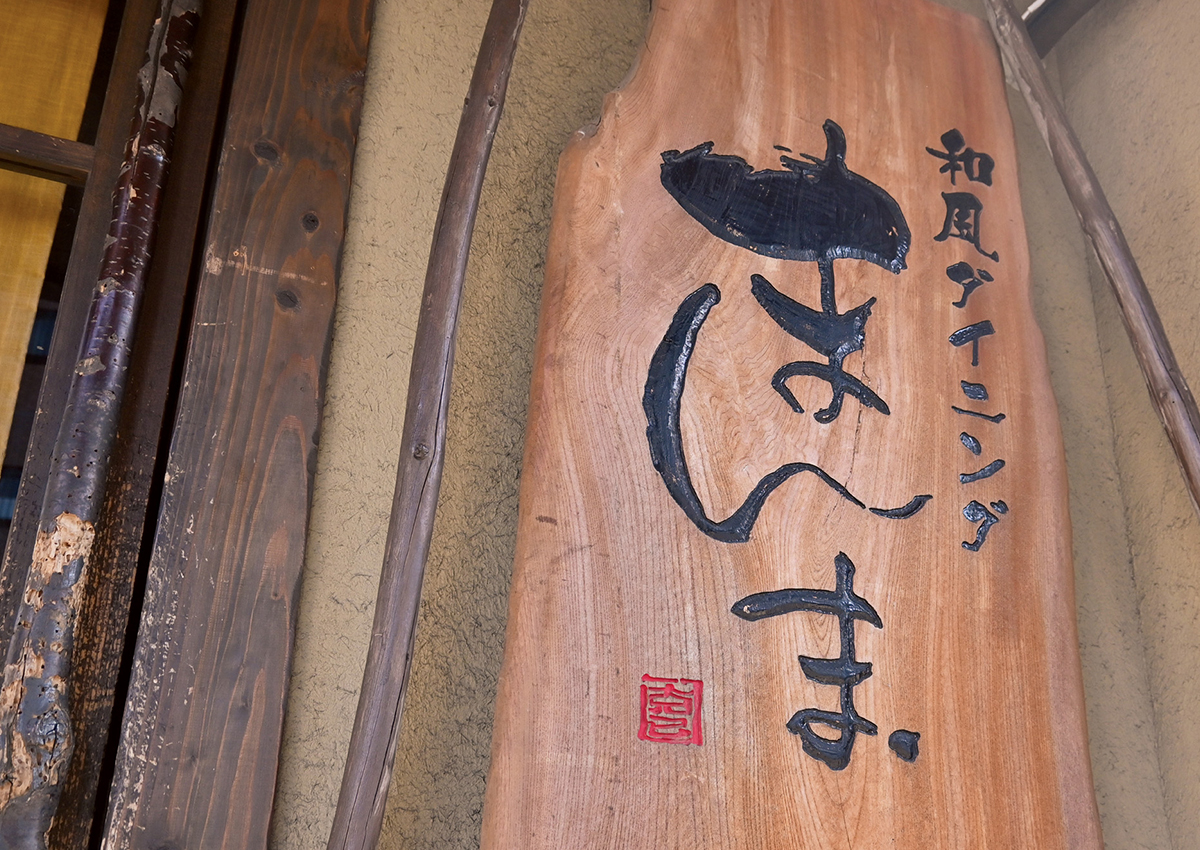 和風ダイニング
まんま